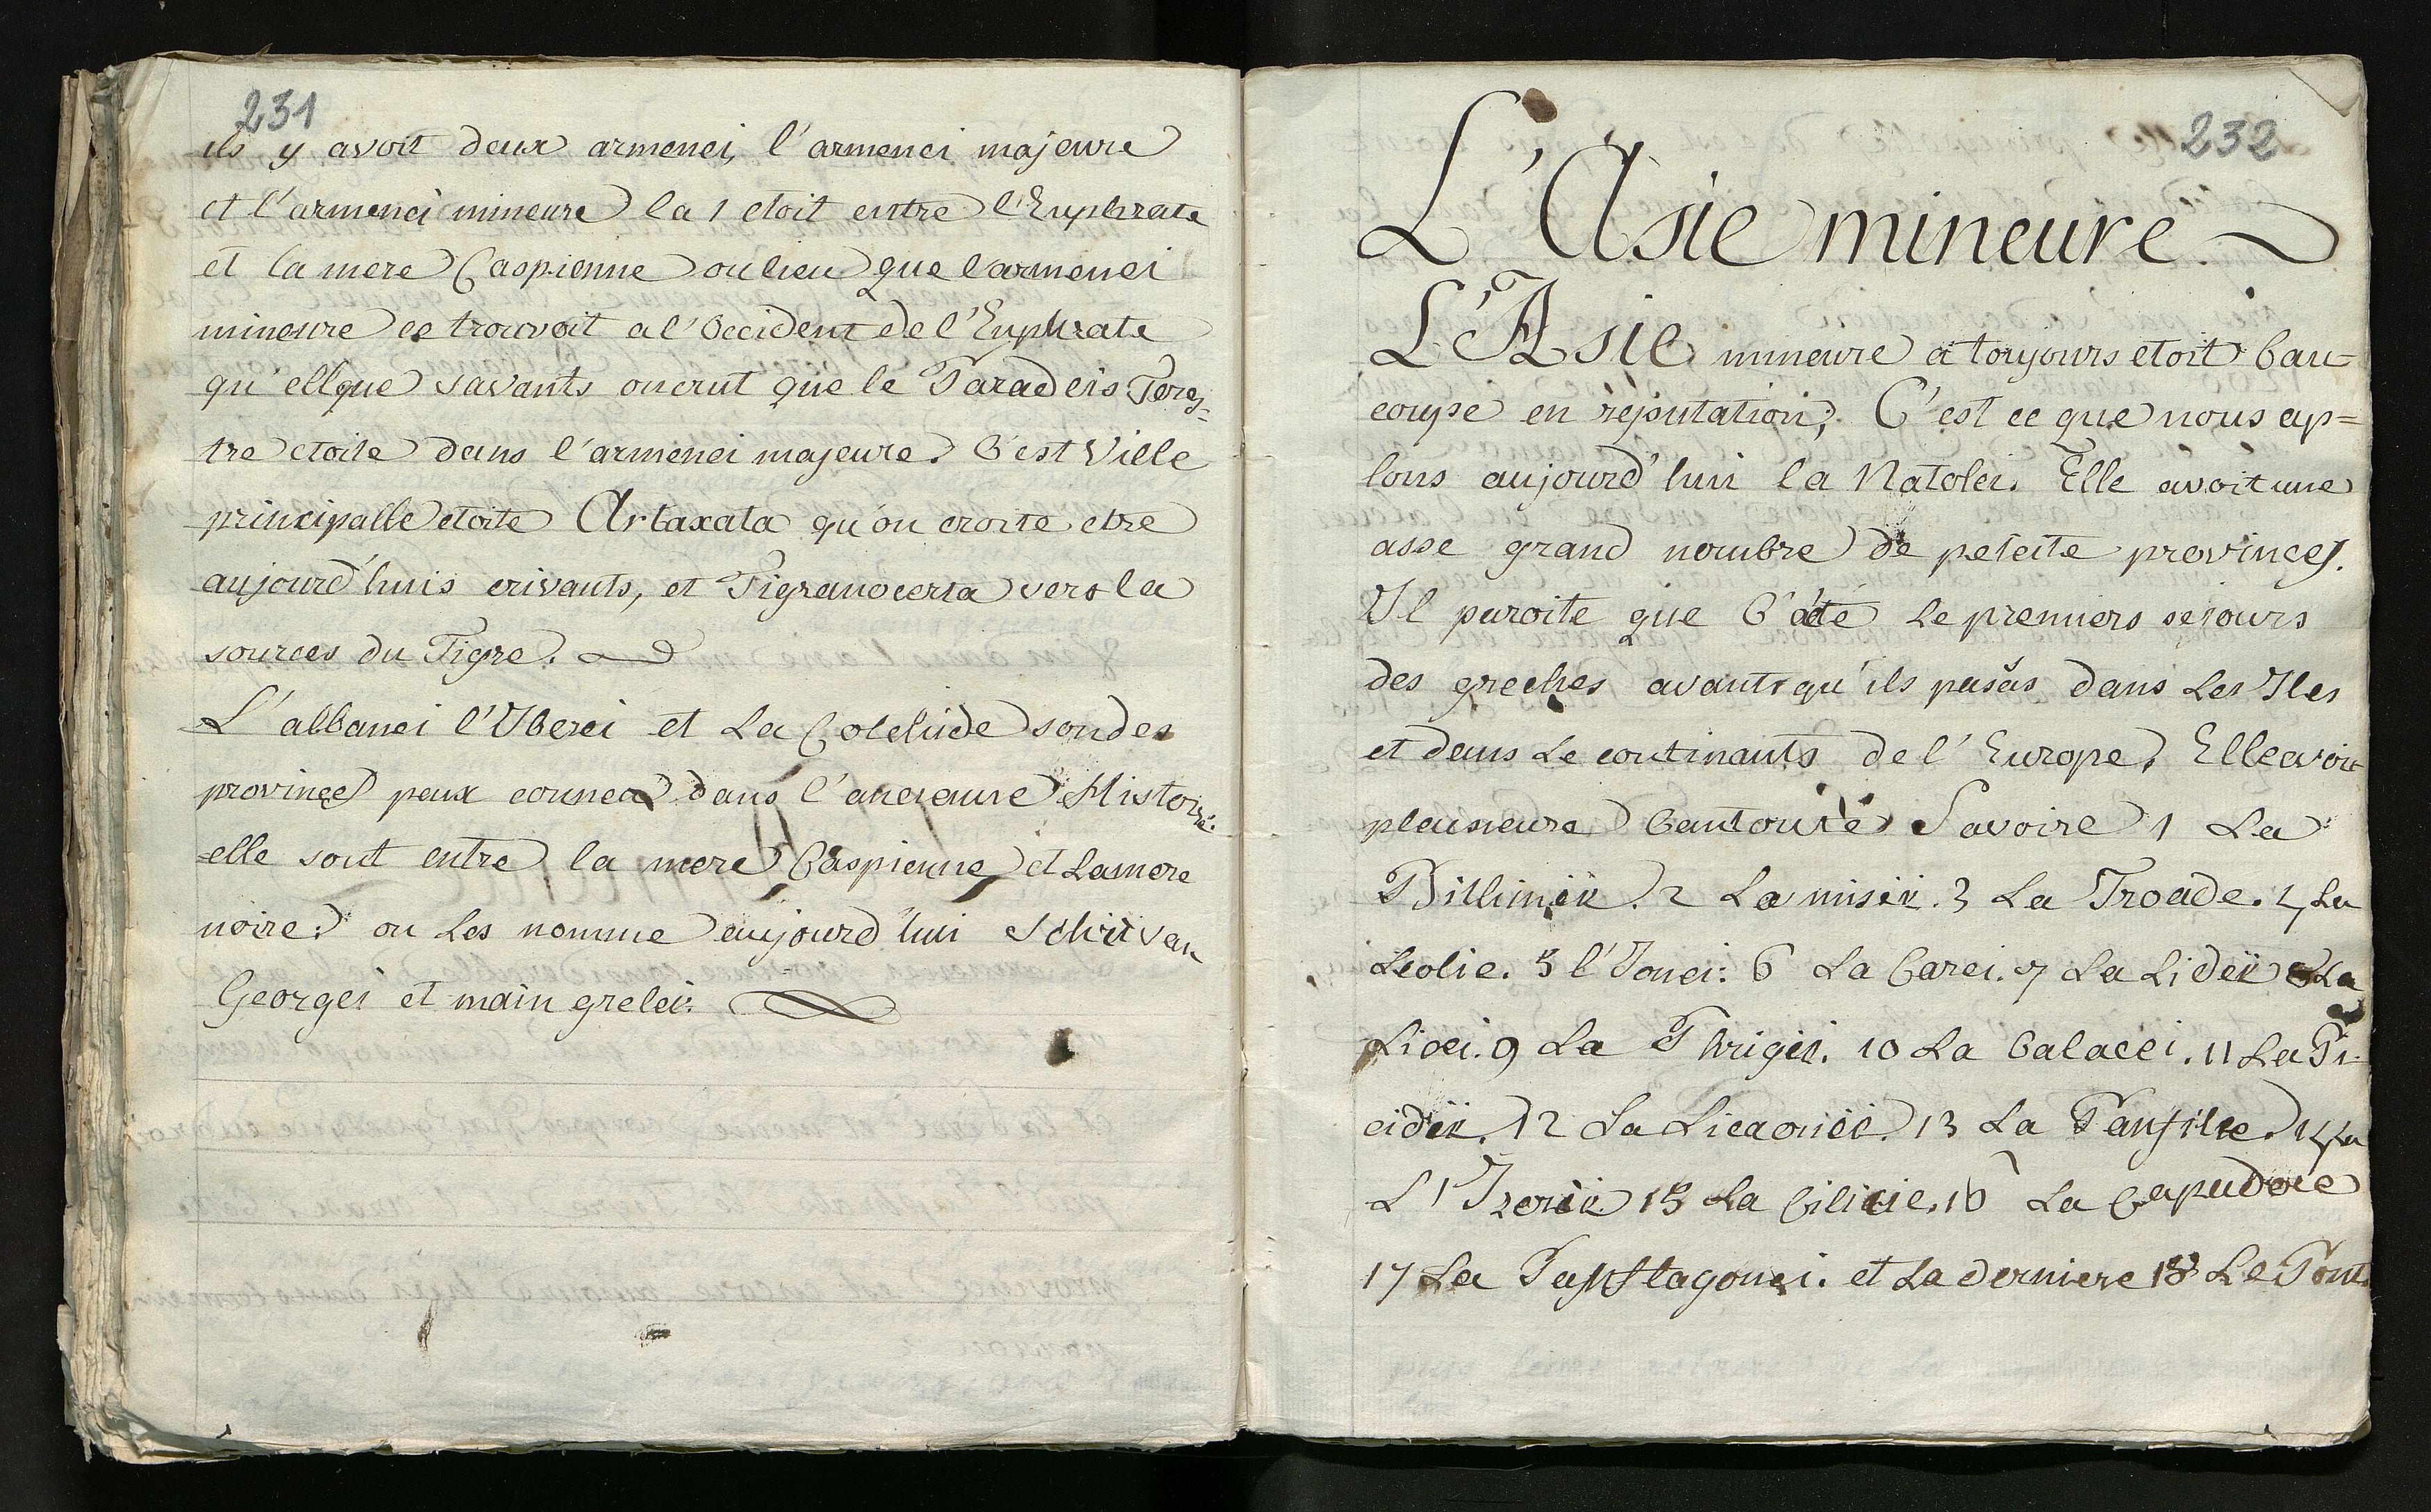 231
ils y avoit deux armenei, l'armenei majeure
et l'armenei mineure la 1 etoit entre l'Euphrate
et la mere Caspienne oulieu que l'armenei
mineure ce trouvoit a l'Occident de l'Euphrate
qu'ellque savants oncrut que le Paradeis Teres-
tre etoite dans l'armenei majeure. C'est Ville
principalle etoite Artaxata qu'on croite etre
aujourd'huis erivants, et Tigranocerta vers la
sources du Tigre.
L'albanei l'Iberei et La Colchide sondes
province peux connea dans l'ancienne Histoire.
elle sont entre la mere Caspienne et Lamere
noire. on Les nomme aujourd'hui Schirvan
Georgei et main grelei.
232
L'Asie mineure
L'Asie mineure a toujours etoit bau=
coupe en reputation; C'est ce que nous ap=
lons aujourd'hui la Natolei. Elle avoit une
asse grand nombre de peteite province.
Il paroite que C'eté Le premiers sejours
des greches avants qu'ils pasäs dans Les Iles
et dans Le continants de l'Europe. Elle avoit
plusieure Cantoure Savoire 1 La
Bithinïe. 2 La misie. 3 La Troade. 4 La
Leolie. 5 l'Ionei. 6 La Carei. 7 La Lideï 8 La
Licei. 9 La Phrigei. 10 La Calacei. 11 La Pi-
cidïe. 12 La Licaonieï. 13 La Panfilie. 14 La
L'Izorïe 15 La Cilicie. 16 La Capadoce
17 La Paphlagonei. et La derniere 18 Le Pont